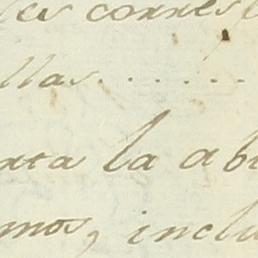 les corres
llas......
ata la ab
mos, inclu